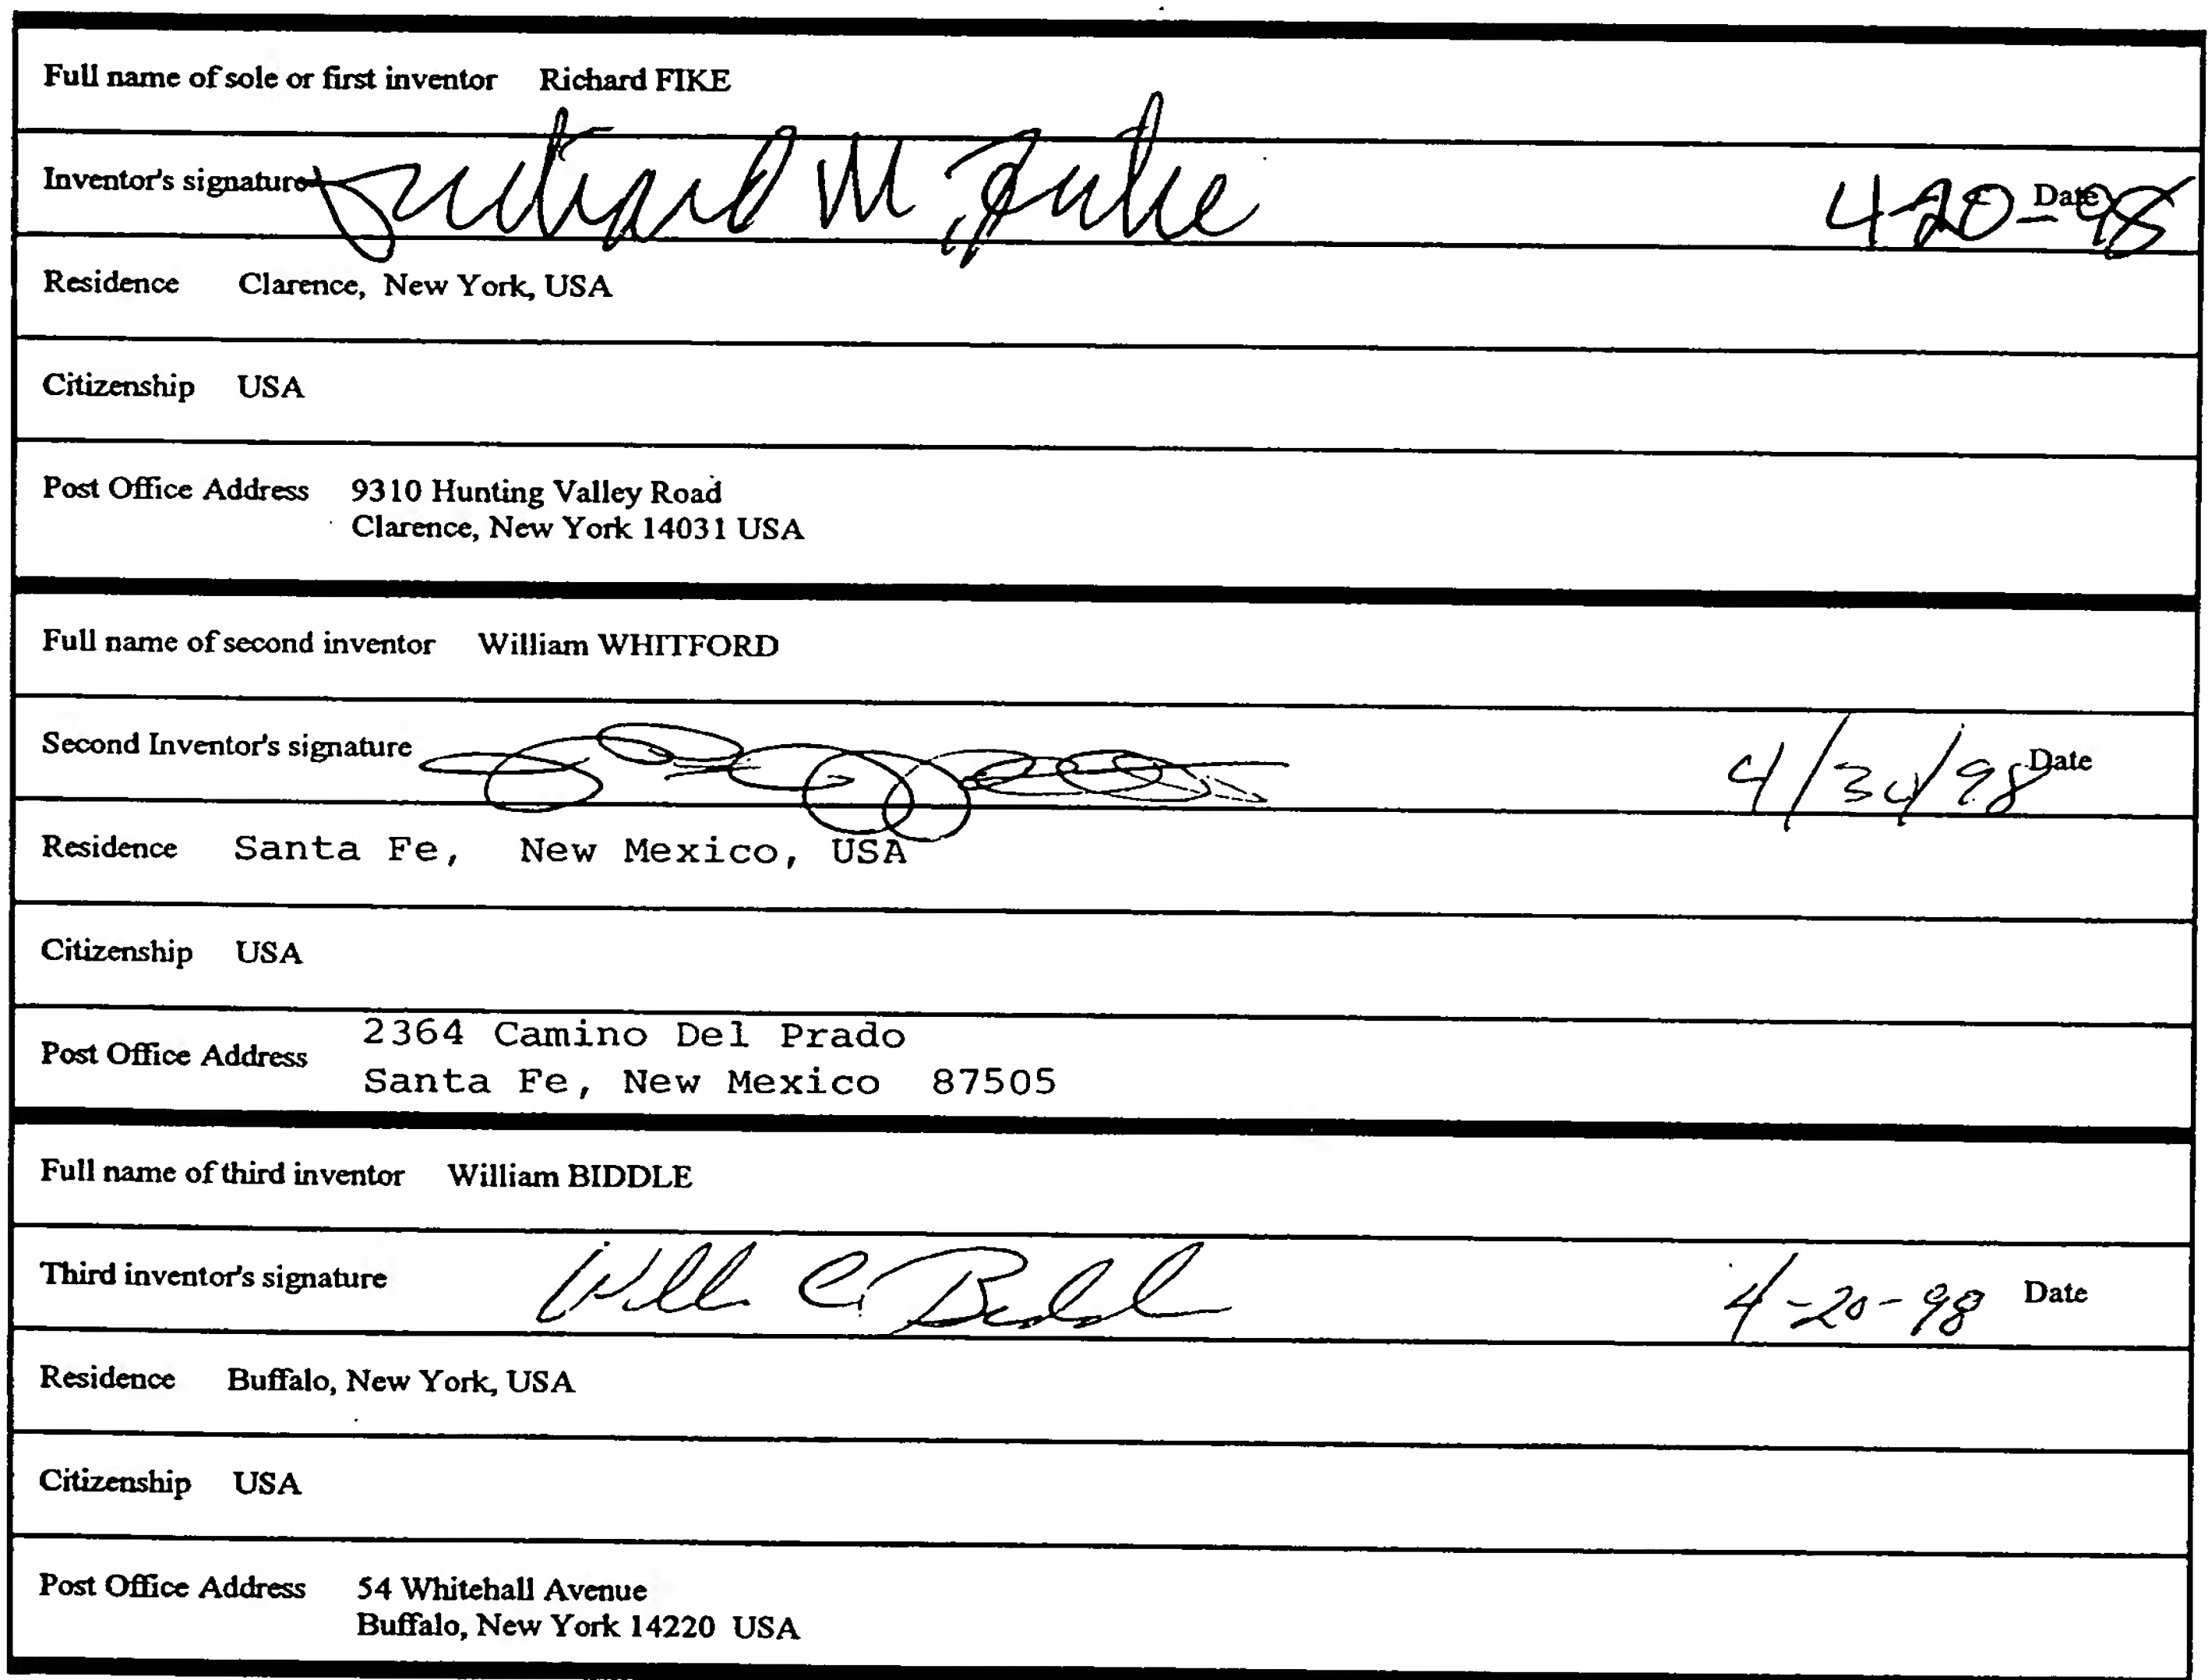 Full name of sole or first inventor Richard FIKE
Inventor's signature Richard M. Fike 4-20-98 Date
Residence Clarence, New York, USA
Citizenship USA
Post Office Address 9310 Hunting Valley Road
Clarence, New York 14031 USA
Full name of second inventor William WHITFORD
Second Inventor's signature 4/30/98 Date
Residence Santa Fe, New Mexico, USA
Citizenship USA
Post Office Address 2364 Camino Del Prado
Santa Fe, New Mexico 87505
Full name of third inventor William BIDDLE
Third inventor's signature Will C. Biddle 4-20-98 Date
Residence Buffalo, New York, USA
Citizenship USA
Post Office Address 54 Whitehall Avenue
Buffalo, New York 14220 USA